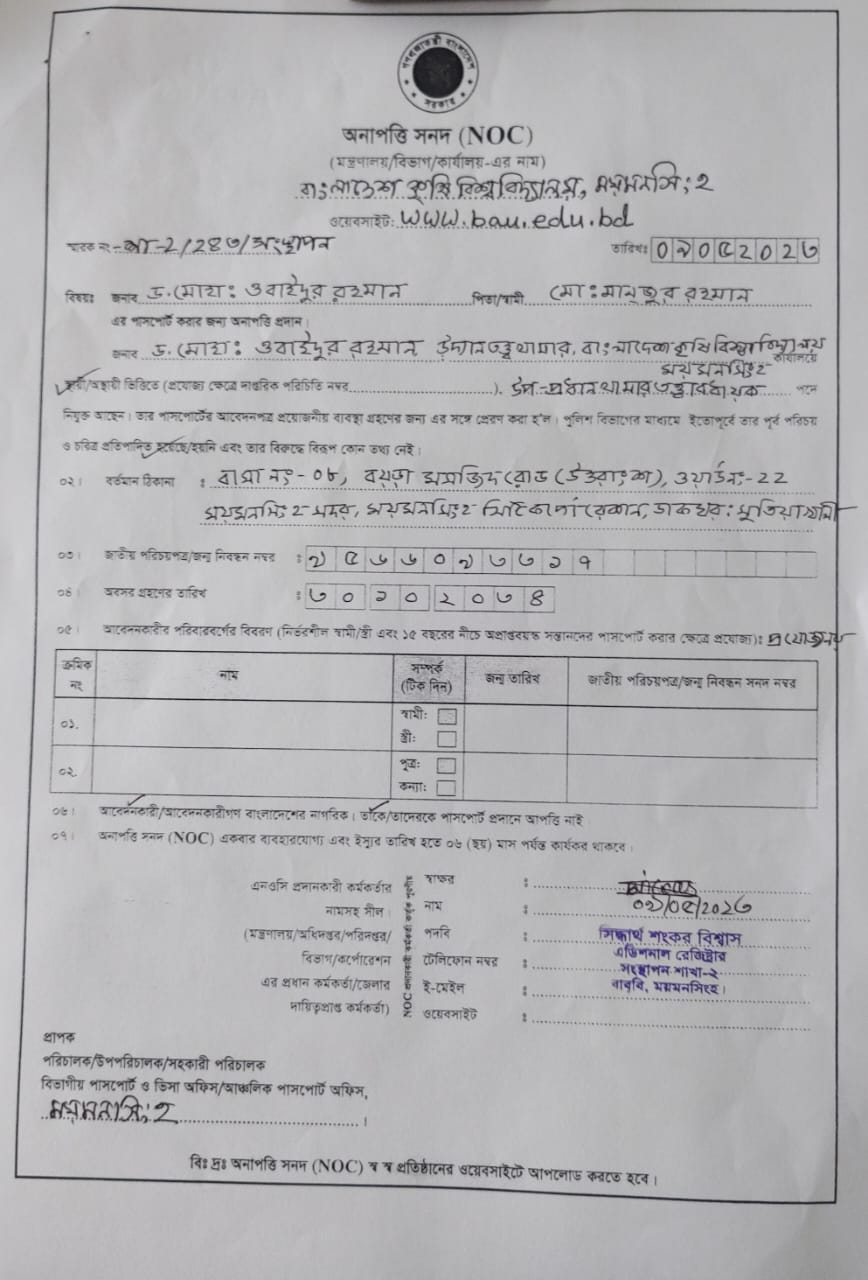 গণপ্রজাতন্ত্রী বাংলাদেশ
সরকার
অনাপত্তি সনদ (NOC)
(মন্ত্রণালয়/বিভাগ/কার্যালয়-এর নাম)
বাংলাদেশ কৃষি বিশ্ববিদ্যালয়, ময়মনসিংহ
ওয়েবসাইট: www.bau.edu.bd
স্মারক নং- /সংস্থাপন তারিখঃ
বিষয়ঃ জনাব ড. মোহাঃ ওবাইদুর রহমান পিতা/স্বামী মোঃ মানজুর রহমান
এর পাসপোর্ট করার জন্য অনাপত্তি প্রদান।
জনাব ড. মোহাঃ ওবাইদুর রহমান উদ্যানতত্ত্ব খামার, বাংলাদেশ কৃষি বিশ্ববিদ্যালয়
ময়মনসিংহ কার্যালয়ে
স্থায়ী/অস্থায়ী ভিত্তিতে (প্রযোজ্য ক্ষেত্রে দাপ্তরিক পরিচিতি নম্বর..........). উপ-প্রধান খামার তত্ত্বাবধায়ক পদে
নিযুক্ত আছেন। তার পাসপোর্টের আবেদনপত্র প্রয়োজনীয় ব্যবস্থা গ্রহণের জন্য এর সঙ্গে প্রেরণ করা হ'ল। পুলিশ বিভাগের মাধ্যমে ইতোপূর্বে তার পূর্ব পরিচয়
ও চরিত্র প্রতিপাদিত হয়েছে/হয়নি এবং তার বিরুদ্ধে বিরূপ কোন তথ্য নেই।
০২। বর্তমান ঠিকানা : বাসা নং- ০৮, বয়ড়া মসজিদ রোড (উত্তরাংশ), ওয়ার্ড নং-২২
ময়মনসিংহ সদর, ময়মনসিংহ সিটি কর্পোরেশন, ডাকঘর: সুতিয়াখালী
০৩। জাতীয় পরিচয়পত্র/জন্ম নিবন্ধন নম্বর :
০৪। অবসর গ্রহণের তারিখ :
০৫। আবেদনকারীর পরিবারবর্গের বিবরণ (নির্ভরশীল স্বামী/স্ত্রী এবং ১৫ বছরের নীচে অপ্রাপ্তবয়স্ক সন্তানদের পাসপোর্ট করার ক্ষেত্রে প্রযোজ্য): প্রযোজ্য নয়
ক্রমিক নং নাম সম্পর্ক (টিক দিন) জন্ম তারিখ জাতীয় পরিচয়পত্র/জন্ম নিবন্ধন সনদ নম্বর
০১. স্বামী:
স্ত্রী:
০২. পুত্র:
কন্যা:
০৬। আবেদনকারী/আবেদনকারীগণ বাংলাদেশের নাগরিক। তাঁকে/তাদেরকে পাসপোর্ট প্রদানে আপত্তি নাই
০৭। অনাপত্তি সনদ (NOC) একবার ব্যবহারযোগ্য এবং ইস্যুর তারিখ হতে ০৬ (ছয়) মাস পর্যন্ত কার্যকর থাকবে।
এনওসি প্রদানকারী কর্মকর্তার স্বাক্ষর :
নামসহ সীল। নাম :
(মন্ত্রণালয়/অধিদপ্তর/পরিদপ্তর/ পদবি : সিদ্ধার্থ শংকর বিশ্বাস
বিভাগ/কর্পোরেশন টেলিফোন নম্বর : এডিশনাল রেজিস্ট্রার
এর প্রধান কর্মকর্তা/জেলার ই-মেইল : সংস্থাপন শাখা-২
দায়িত্বপ্রাপ্ত কর্মকর্তা) ওয়েবসাইট : বাকৃবি, ময়মনসিংহ।
NOC প্রদানকারী কর্মকর্তা কর্তৃক পূরণীয়
প্রাপক
পরিচালক/উপপরিচালক/সহকারী পরিচালক
বিভাগীয় পাসপোর্ট ও ভিসা অফিস/আঞ্চলিক পাসপোর্ট অফিস,
ময়মনসিংহ।
বিঃ দ্রঃ অনাপত্তি সনদ (NOC) স্ব স্ব প্রতিষ্ঠানের ওয়েবসাইটে আপলোড করতে হবে।